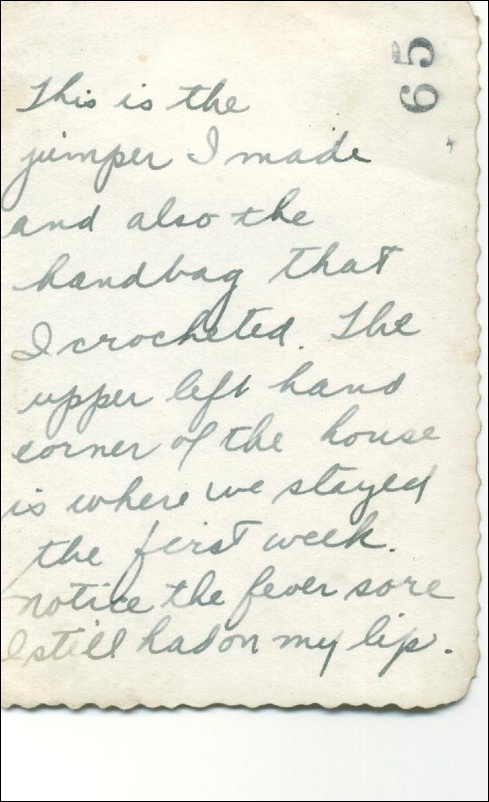 65
This is the
jumper I made
and also the
handbag that
I crocheted. The
upper left hand
corner of the house
is where we stayed
the first week.
notice the fever sore
I still had on my lip.